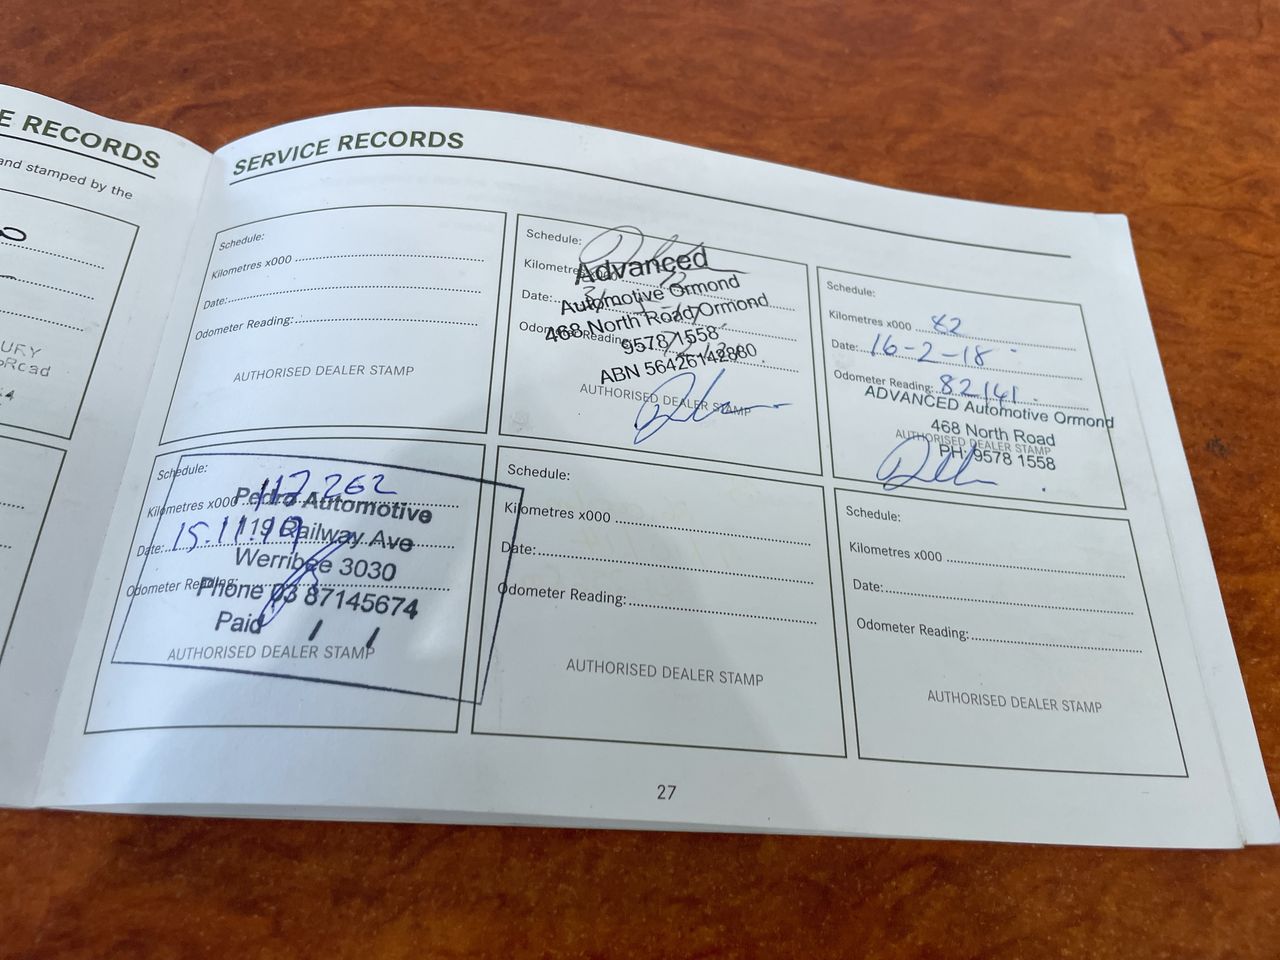 E RECORDS
and stamped by the
URY
SERVICE RECORDS
Schedule:
Kilometres x000
Date:
Odometer Reading:
AUTHORISED DEALER STAMP
Schedule:
Kilometres
Date:
Odometer Reading
Advanced
Automotive Ormond
468 North Road Ormond
9578 1558
ABN 56426142880
AUTHORISED DEALER STAMP
Schedule:
Kilometres x000 82
Date: 16-2-18
Odometer Reading: 82141
ADVANCED Automotive Ormond
468 North Road
AUTHORISED DEALER STAMP
PH: 9578 1558
Schedule:
Kilometres x000 117,262
Pedro Automotive
Date: 15.11.19
119 Railway Ave
Werribee 3030
Odometer Reading:
Phone 03 87145674
Paid / /
AUTHORISED DEALER STAMP
Schedule:
Kilometres x000
Date:
Odometer Reading:
AUTHORISED DEALER STAMP
Schedule:
Kilometres x000
Date:
Odometer Reading:
AUTHORISED DEALER STAMP
27